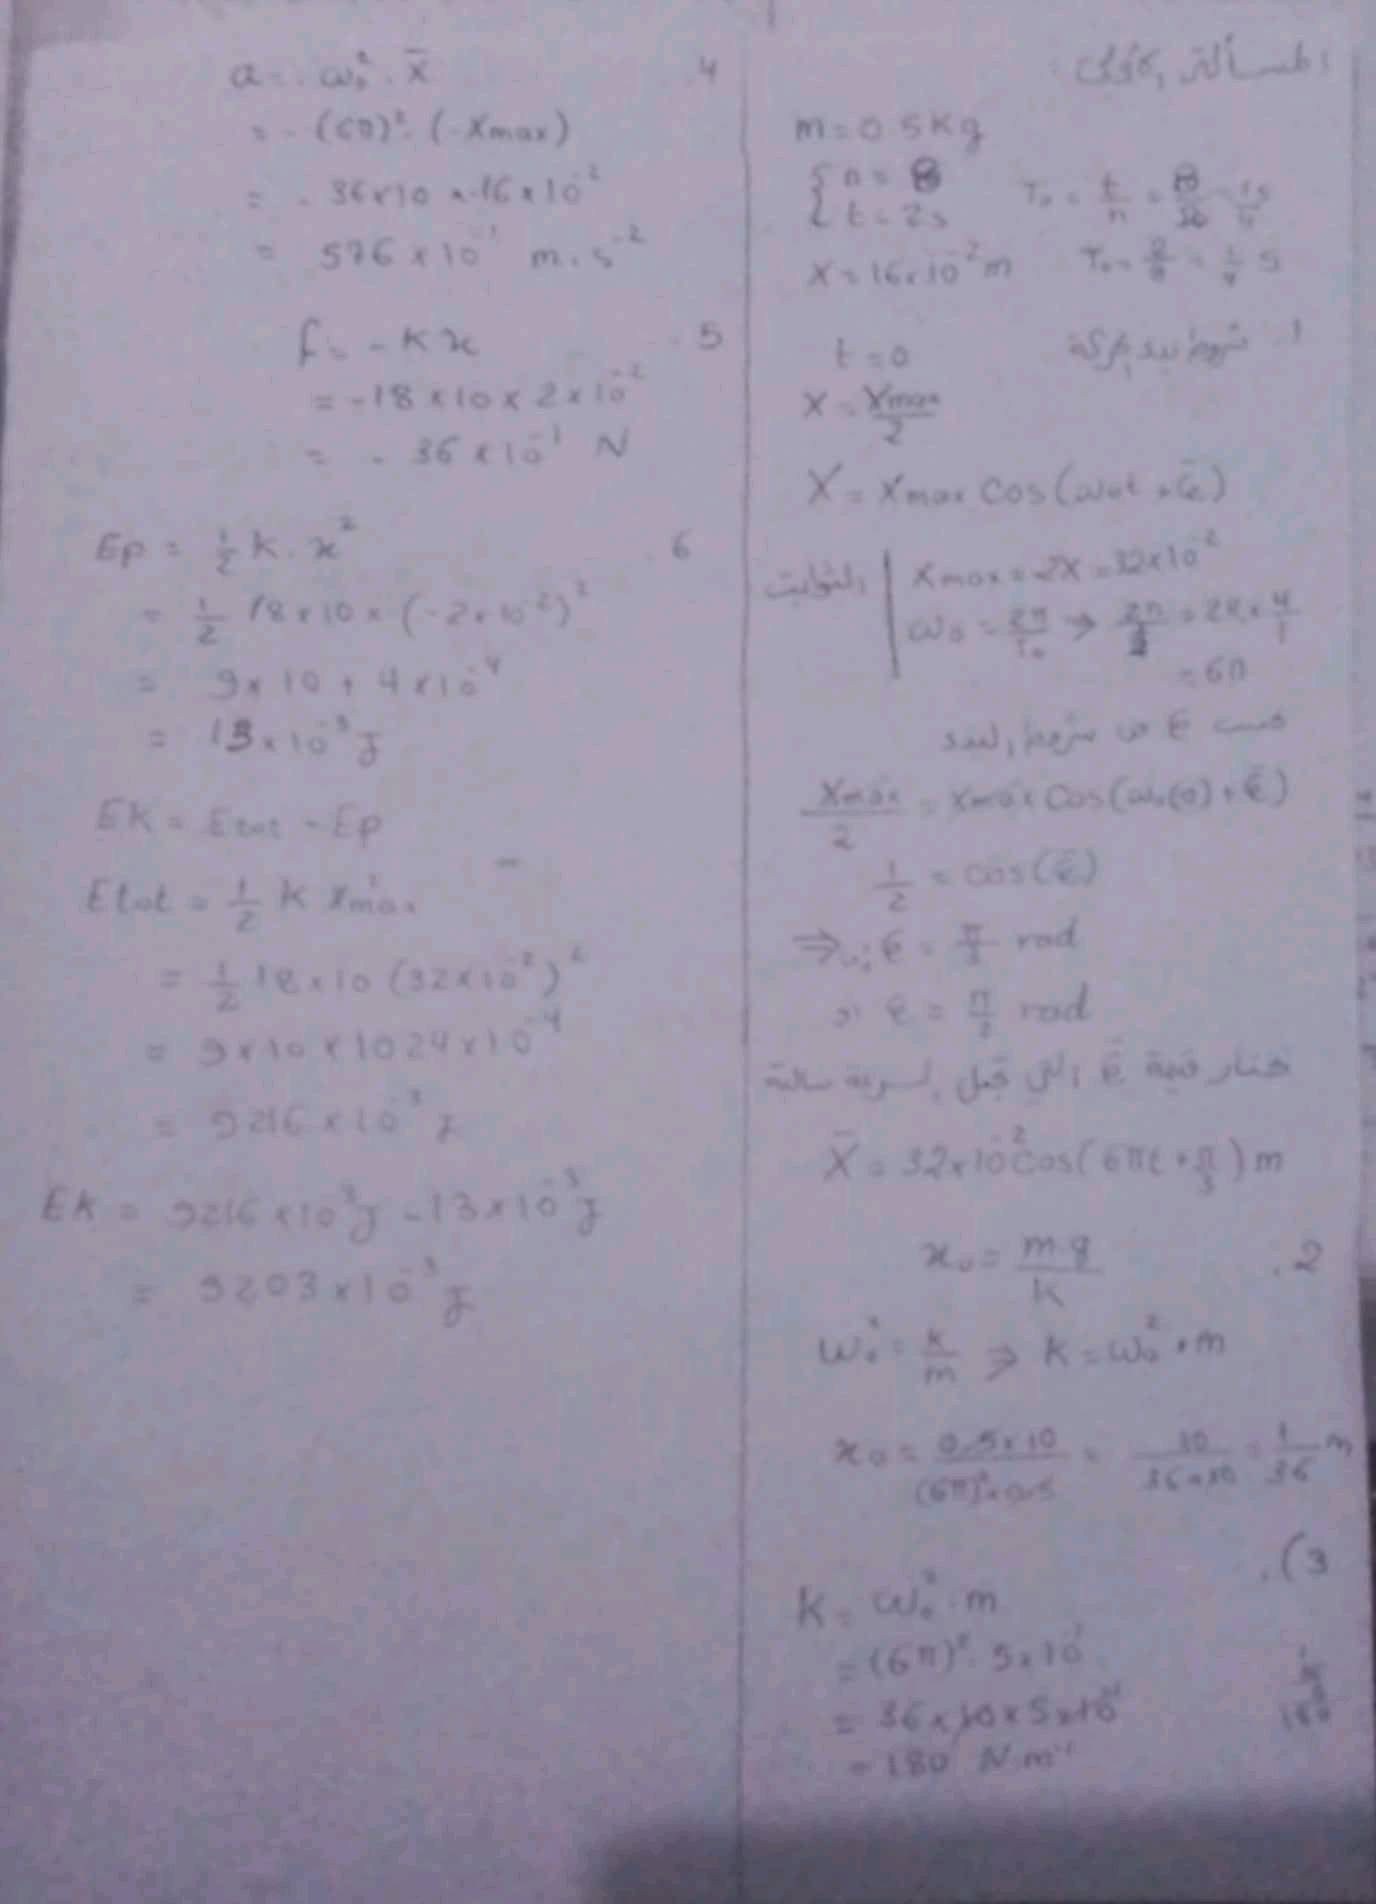 المسألة الأولى
m = 0.5 Kg
n = 8
t = 2s
T₀ = t/n
X = 16×10⁻² m
T₀ = 2/8 = 1/4 s
1 شروط بدء الحركة
t = 0
X = Xmax/2
X = Xmax Cos(ω₀t + φ̄)
الثوابت
Xmax = 2X = 32×10⁻²
ω₀ = 2π/T₀ → = 2π × 4/1
= 6π
φ من شروط البدء
Xmax/2 = Xmax Cos(ω₀(0) + φ̄)
1/2 = cos(φ̄)
⇒ φ = π/3 rad
φ = π/3 rad
نختار قيمة φ̄ التي تجعل السرعة سالبة
X̄ = 32×10⁻² cos(6πt + π/3) m
2.
x₀ = m.g/k
ω₀² = k/m ⇒ k = ω₀² . m
x₀ = 0.5×10/(6π)²×0.5 = 10/36×10 = 1/36 m
3).
k = ω₀² . m
= (6π)² . 5×10⁻¹
= 36×10×5×10⁻¹
= 180 N.m⁻¹
4
a = - ω₀² . X̄
= - (6π)² . (-Xmax)
= - 36×10 × -16×10⁻²
= 576×10⁻¹ m.s⁻²
5
f = - k x
= -18×10×2×10⁻²
= - 36×10⁻¹ N
6
Ep = 1/2 k . x²
= 1/2 18×10×(-2×10⁻²)²
= 9×10 + 4×10⁻⁴
= 13×10⁻³ J
Ek = Etot - Ep
Etot = 1/2 k X²max
= 1/2 18×10 (32×10⁻²)²
= 9×10×1024×10⁻⁴
= 9216×10⁻³ J
Ek = 9216×10⁻³ J - 13×10⁻³ J
= 9203×10⁻³ J